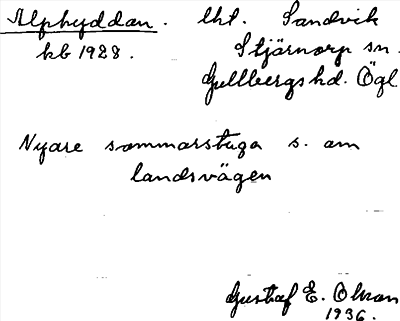 Alphyddan. lht. Sandvik
kb 1928. Stjärnorp sn.
Gullbergs hd. Ögl
Nyare sommarstuga s. om
landsvägen
Gustaf E. Olson
1936.